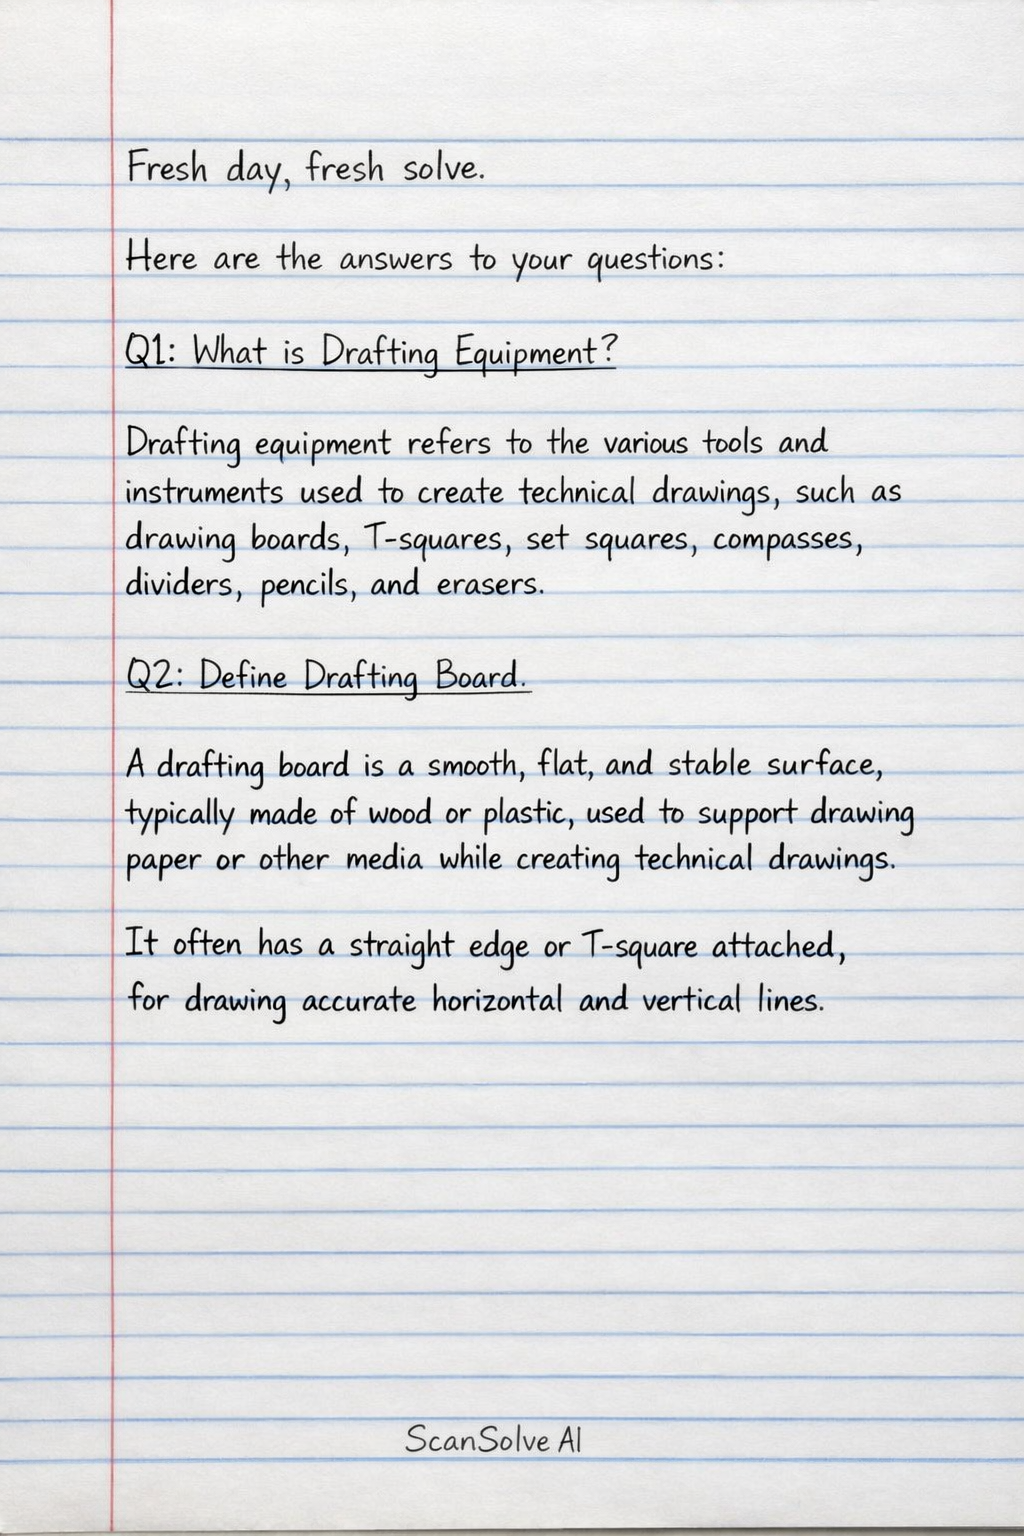 Fresh day, fresh solve.
Here are the answers to your questions:
Q1: What is Drafting Equipment?
Drafting equipment refers to the various tools and
instruments used to create technical drawings, such as
drawing boards, T-squares, set squares, compasses,
dividers, pencils, and erasers.
Q2: Define Drafting Board.
A drafting board is a smooth, flat, and stable surface,
typically made of wood or plastic, used to support drawing
paper or other media while creating technical drawings.
It often has a straight edge or T-square attached,
for drawing accurate horizontal and vertical lines.
ScanSolve AI